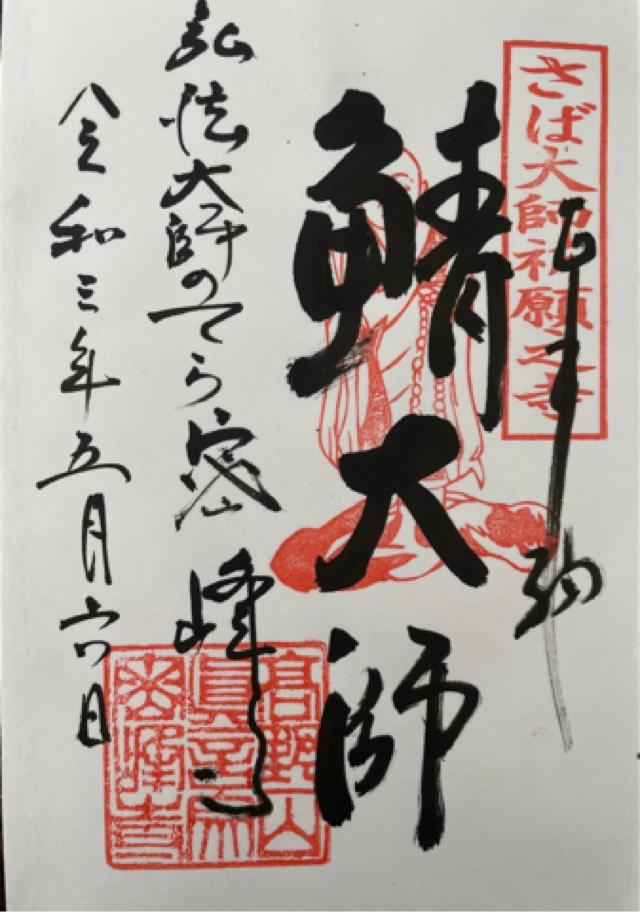 さば大師祈願之寺
奉拝
鯖大師
弘法大師のてら密峰寺
令和三年五月六日
高野山
真言宗
密峰寺